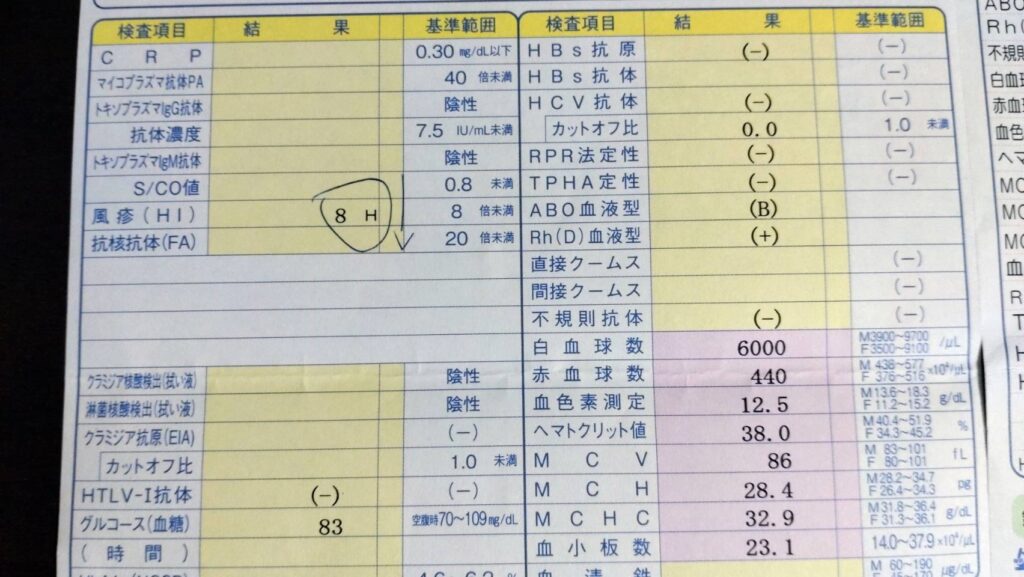 検査項目 結 果 基準範囲
C R P 0.30 mg/dL以下
マイコプラズマ抗体PA 40 倍未満
トキソプラズマIgG抗体 陰性
抗体濃度 7.5 IU/mL未満
トキソプラズマIgM抗体 陰性
S/CO値 0.8 未満
風疹(HI) 8 H 8 倍未満
抗核抗体(FA) 20 倍未満
クラミジア核酸検出(拭い液) 陰性
淋菌核酸検出(拭い液) 陰性
クラミジア抗原(EIA) (−)
カットオフ比 1.0 未満
HTLV-I抗体 (−) (−)
グルコース(血糖) 83 空腹時70〜109mg/dL
(時間)
検査項目 結 果 基準範囲
HBs抗原 (−) (−)
HBs抗体 (−)
HCV抗体 (−) (−)
カットオフ比 0.0 1.0 未満
RPR法定性 (−) (−)
TPHA定性 (−) (−)
ABO血液型 (B)
Rh(D)血液型 (+)
直接クームス (−)
間接クームス (−)
不規則抗体 (−) (−)
白血球数 6000 M3900〜9700 F3500〜9100 /μL
赤血球数 440 M 438〜577 F 376〜516 ×10⁴/μL
血色素測定 12.5 M13.6〜18.3 F11.2〜15.2 g/dL
ヘマトクリット値 38.0 M40.4〜51.9 F34.3〜45.2 %
M C V 86 M 83〜101 F 80〜101 fL
M C H 28.4 M28.2〜34.7 F26.4〜34.3 pg
M C H C 32.9 M31.8〜36.4 F31.3〜36.1 g/dL
血小板数 23.1 14.0〜37.9 ×10⁴/μL
血清鉄 M 60〜190 μg/dL
ABO
Rh(
不規則
白血球
赤血
血色
ヘマ
MC
MC
MC
血